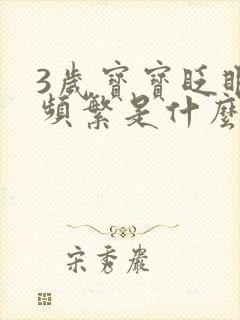 3歲寶寶眨眼
頻繁是什麼
宋秀巖